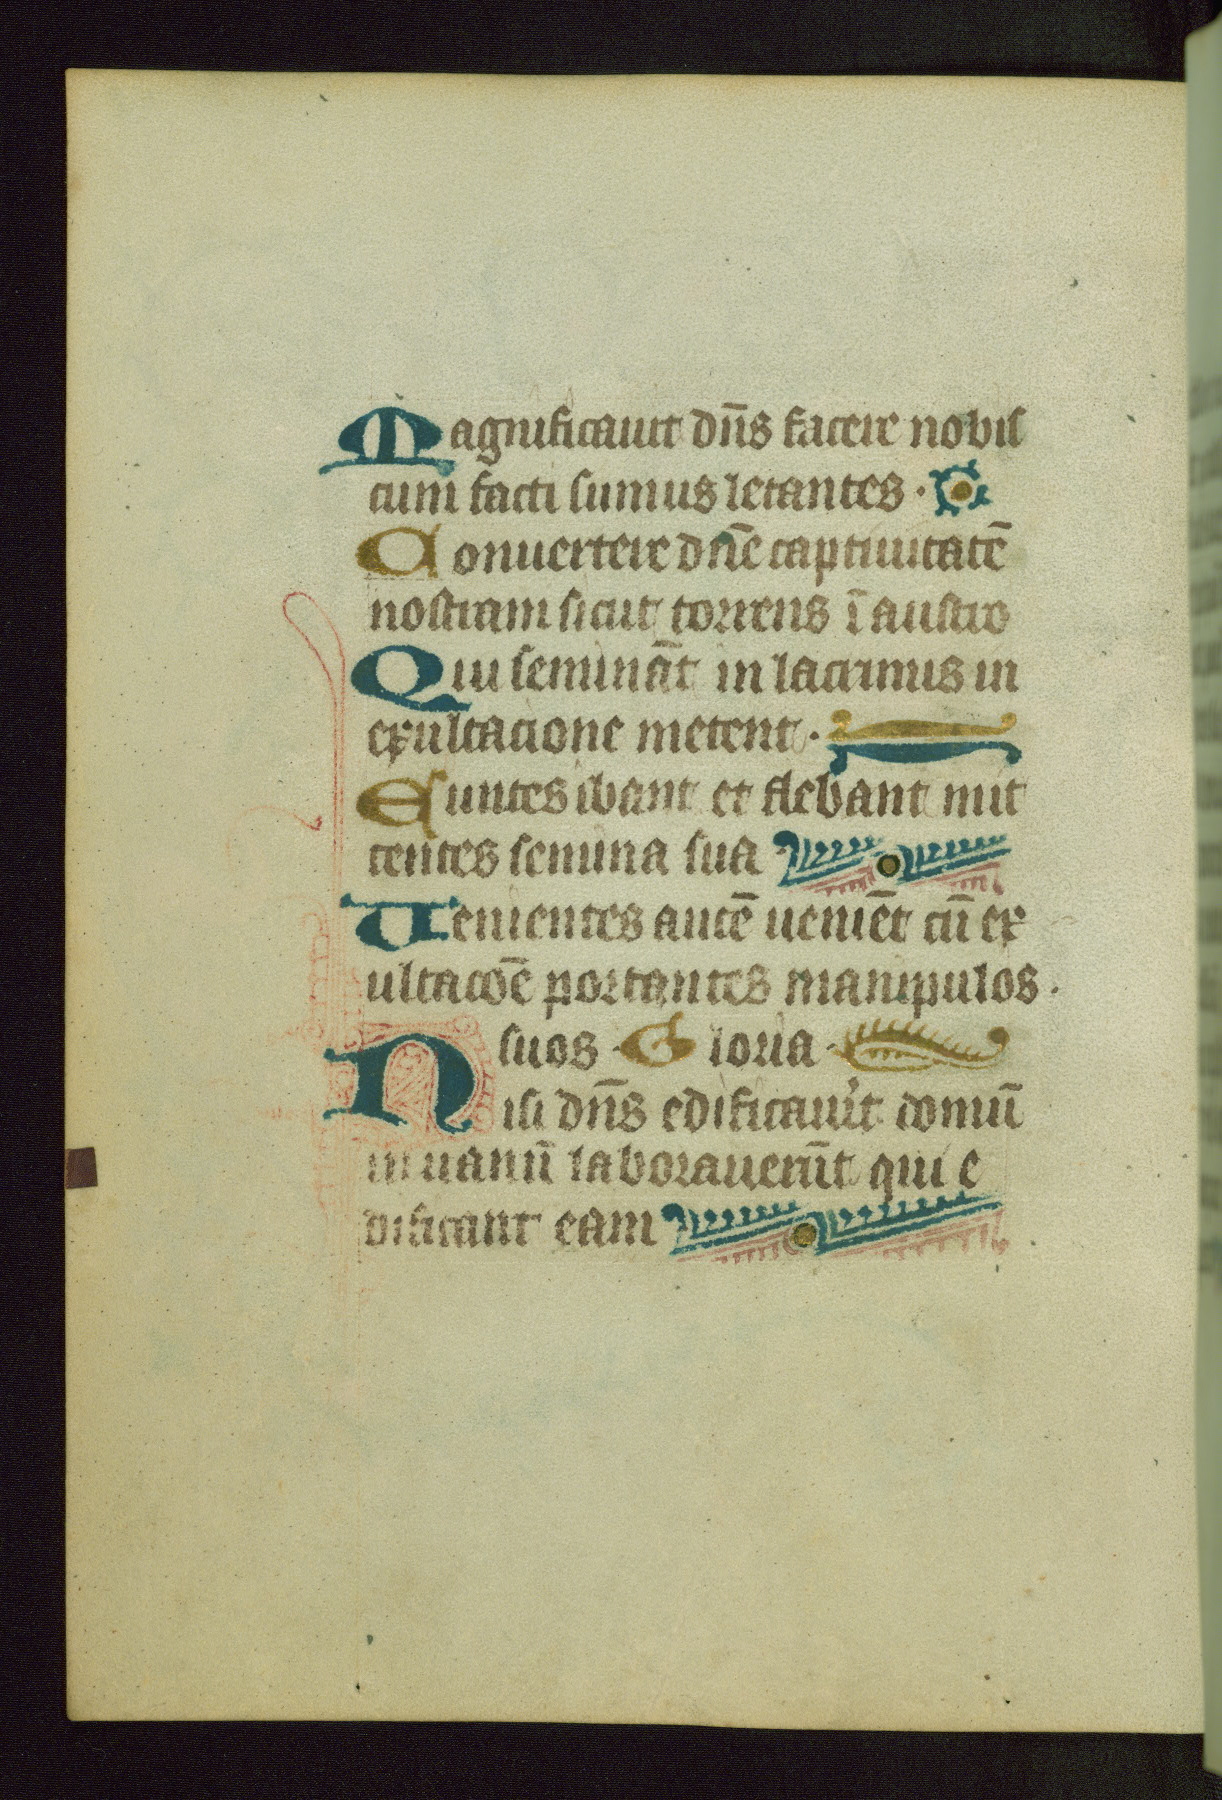 Magnificauit dn̄s facere nobis
cum facti sumus letantes ·
Conuertere dn̄e captiuitatē
nostram sicut torrens ī austro
Qui seminā̄t in lacrimis in
exultacione metent ·
Euntes ibant et flebant mit
tentes semina sua ·
Uenientes autē ueniēt cū ex
ultacōē portantes manipulos ·
suos · Gloria ·
Nisi dn̄s edificau't domū
in uanū laborauerūt qui e
dificant eam